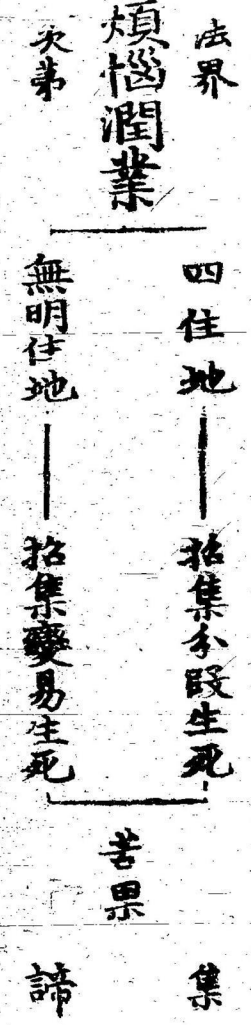 法界
次第
煩惱潤業
四住地
招集分段生死
無明住地
招集變易生死
苦果
集
諦